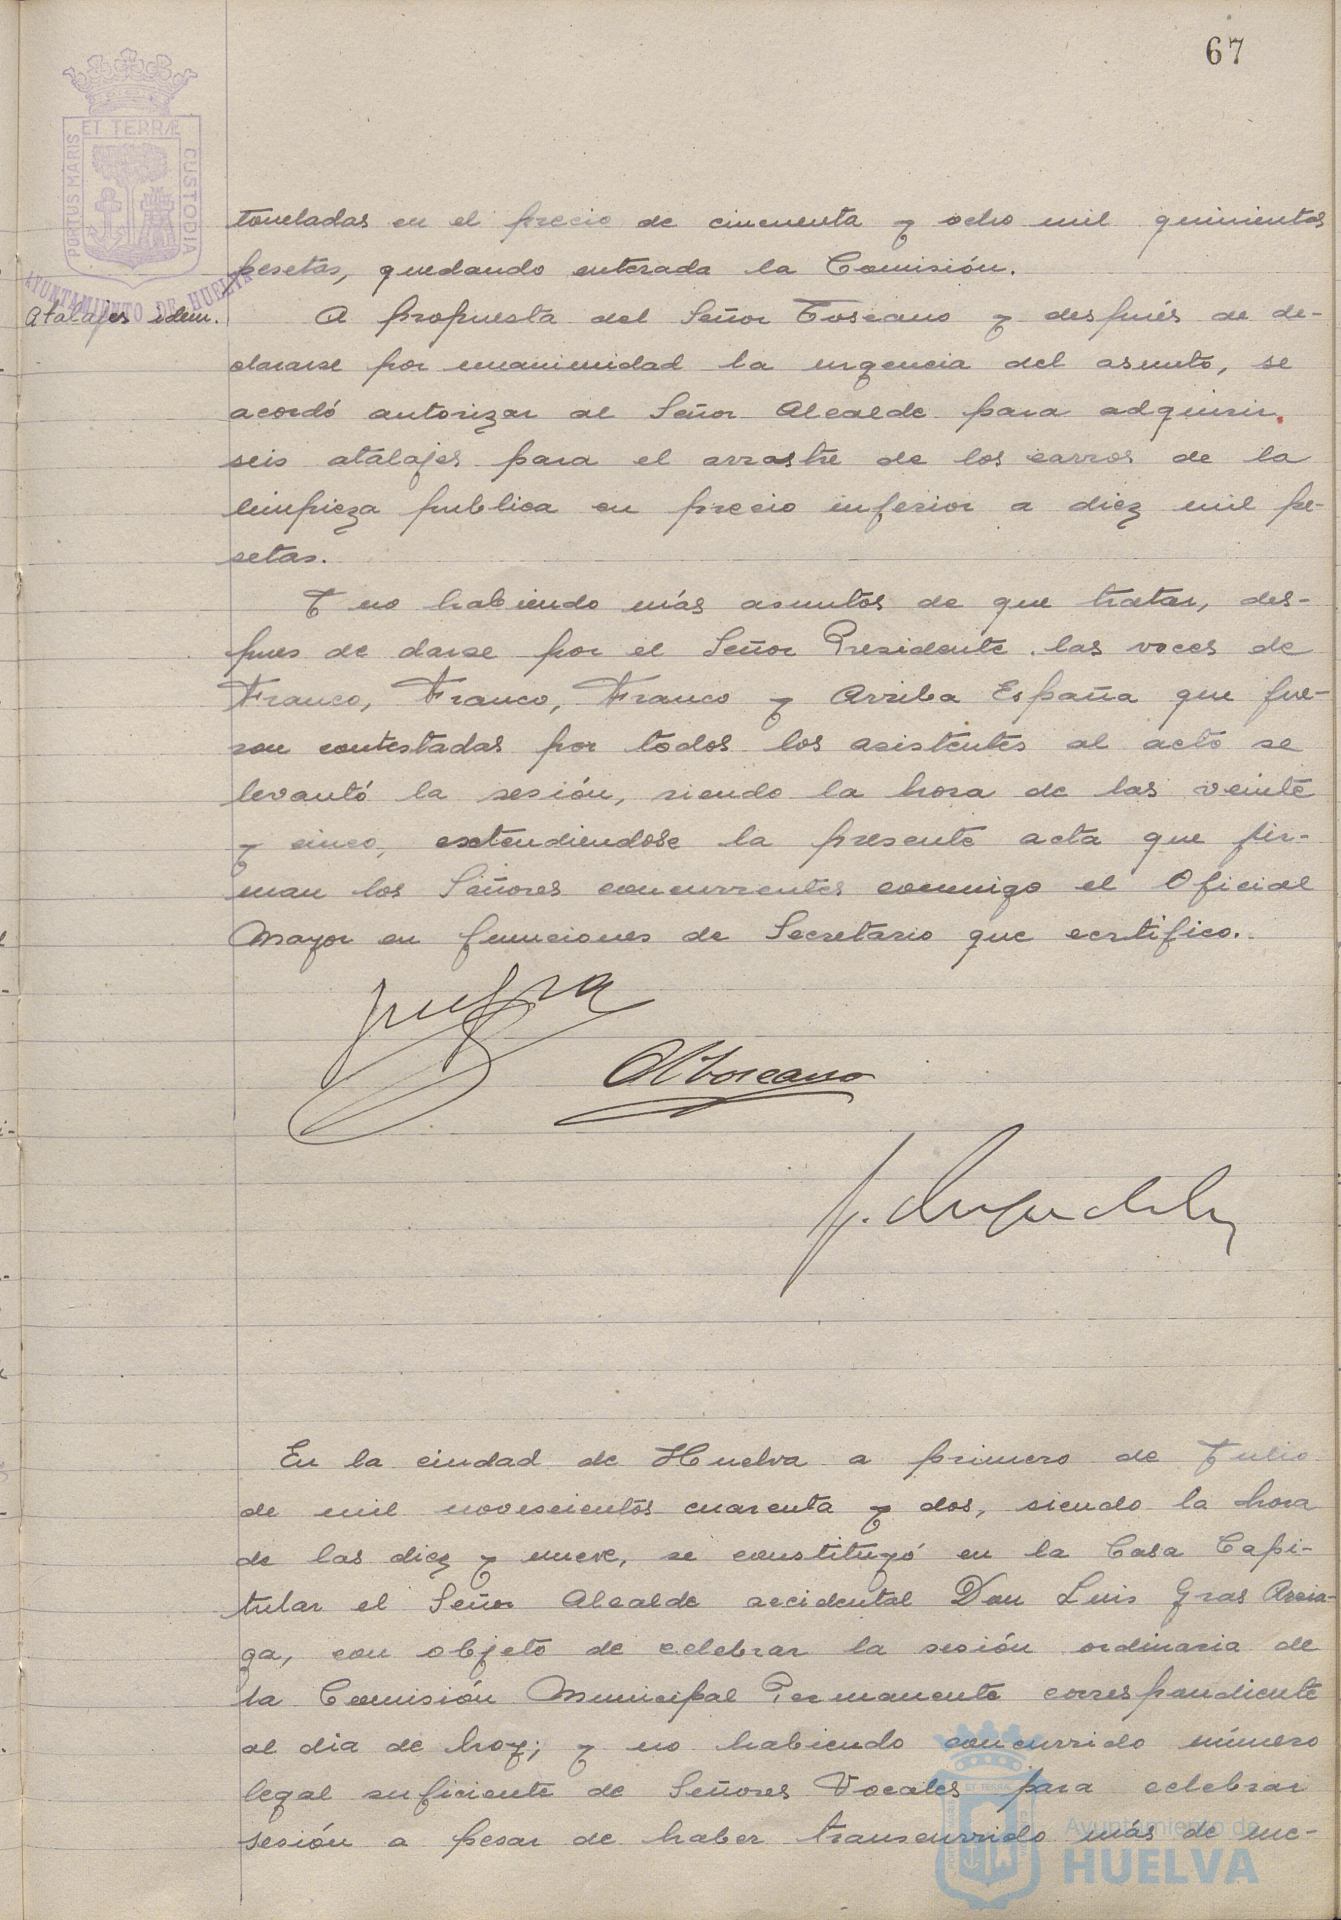 67
PORTUS MARIS ET TERRÆ CUSTODIA
AYUNTAMIENTO DE HUELVA
toneladas en el precio de cincuenta y ocho mil quinientas
pesetas, quedando enterada la Comisión.
Atalajes idem.
A propuesta del Señor Toscano y después de de-
clararse por unanimidad la urgencia del asunto, se
acordó autorizar al Señor Alcalde para adquirir
seis atalajes para el arrastre de los carros de la
limpieza publica en precio inferior a diez mil pe-
setas.
Y no habiendo más asuntos de que tratar, des-
pues de darse por el Señor Presidente las voces de
Franco, Franco, Franco y Arriba España que fue-
ron contestadas por todos los asistentes al acto se
levantó la sesión, siendo la hora de las veinte
y cinco, extendiendose la presente acta que fir-
man los Señores concurrentes conmigo el Oficial
Mayor en funciones de Secretario que certifico.
En la ciudad de Huelva a primero de Julio
de mil novescientos cuarenta y dos, siendo la hora
de las diez y nueve, se constituyó en la Casa Capi-
tular el Señor Alcalde accidental Don Luis Gras Arria-
ga, con objeto de celebrar la sesión ordinaria de
la Comisión Municipal Permanente correspondiente
al dia de hoy; y no habiendo concurrido número
legal suficiente de Señores Vocales para celebrar
sesión a pesar de haber transcurrido más de me-
Ayuntamiento de
HUELVA